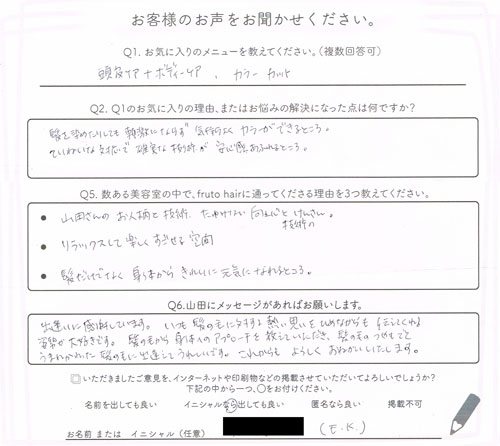 お客様のお声をお聞かせください。
Q1. お気に入りのメニューを教えてください。（複数回答可）
頭皮ケア+ボディーケア 、 カラー カット
Q2. Q1のお気に入りの理由、またはお悩みの解決になった点は何ですか？
髪を染めたりしても 刺激にならず 気持ちよく カラーができるところ。
ていねいな 確実な 技術が 安心感あふれるところ。
Q5. 数ある美容室の中で、fruto hairに通ってくださる理由を3つ教えてください。
● 山田さんの お人柄と 技術. たゆまない 向上心と けんさん。
技術の
● リラックスして 楽しく すごせる 空間
● 髪だけでなく 身体から きれいに 元気に なれるところ。
Q6.山田にメッセージがあればお願いします。
出逢いに感謝しています。 いつも 髪の毛に対する 熱い 思いを ひめながらも
姿勢が 大好きです。 髪の毛から 身体へのアプローチを 教えていただき、 髪の毛の
うまれかわれた 髪の毛に 出逢えて うれしいです。 これからも よろしく おねがいいたします。
□いただきましたご意見を、インターネットや印刷物などの掲載させていただいてよろしいでしょうか？
下記の中から一つ、○をお付けください。
名前を出しても良い イニシャルなら出しても良い 匿名なら良い 掲載不可
お名前 または イニシャル（任意） (E.K.)